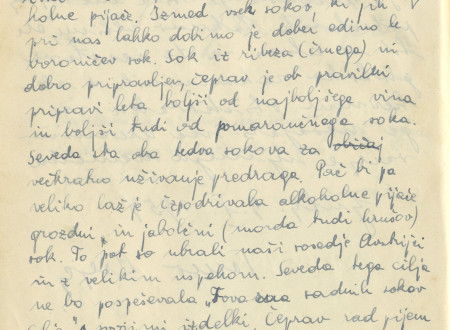 holne pijače. Izmed vseh sokov, ki jih
pri nas lahko dobimo je dober edino le
borovničev sok. Sok iz ribeza (črnega) ni
dobro pripravljen, čeprav je ob pravilni
pripravi leta boljši od najboljšega vina
in boljši tudi od pomarančnega soka.
Seveda sta oba tedva sokova za običaj
večkratno uživanje predraga. Pač bi pa
veliko lažje izpodrivala alkoholne pijače
grozdni, in jabolčni (morda tudi hrušov)
sok. To pot so ubrali naši sosedje Avstrijci
in z velikim uspehom. Seveda tega cilja
ne bo pospeševala „Tovarna sadnih sokov
izdelki, čeprav rad pijem